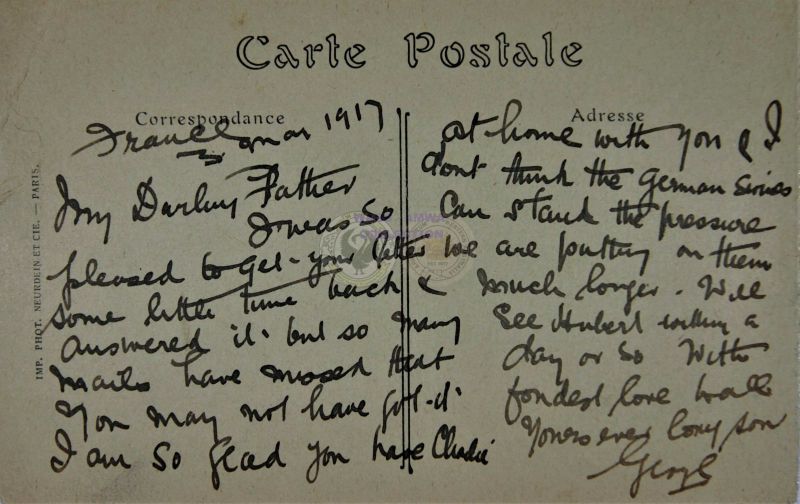 Carte Postale
Correspondance
France 1917
My Darling Father
I was so
pleased to get your letter
some little time back &
answered it but so many
mails have missed that
you may not have got it
I am so glad you have Charlie
Adresse
at home with you & I
dont think the German Swines
can stand the pressure
we are putting on them
much longer. Will
see Hubert within a
day or so With
fondest love to all
Yours ever loving son
George
IMP. PHOT. NEURDEIN ET CIE. — PARIS.